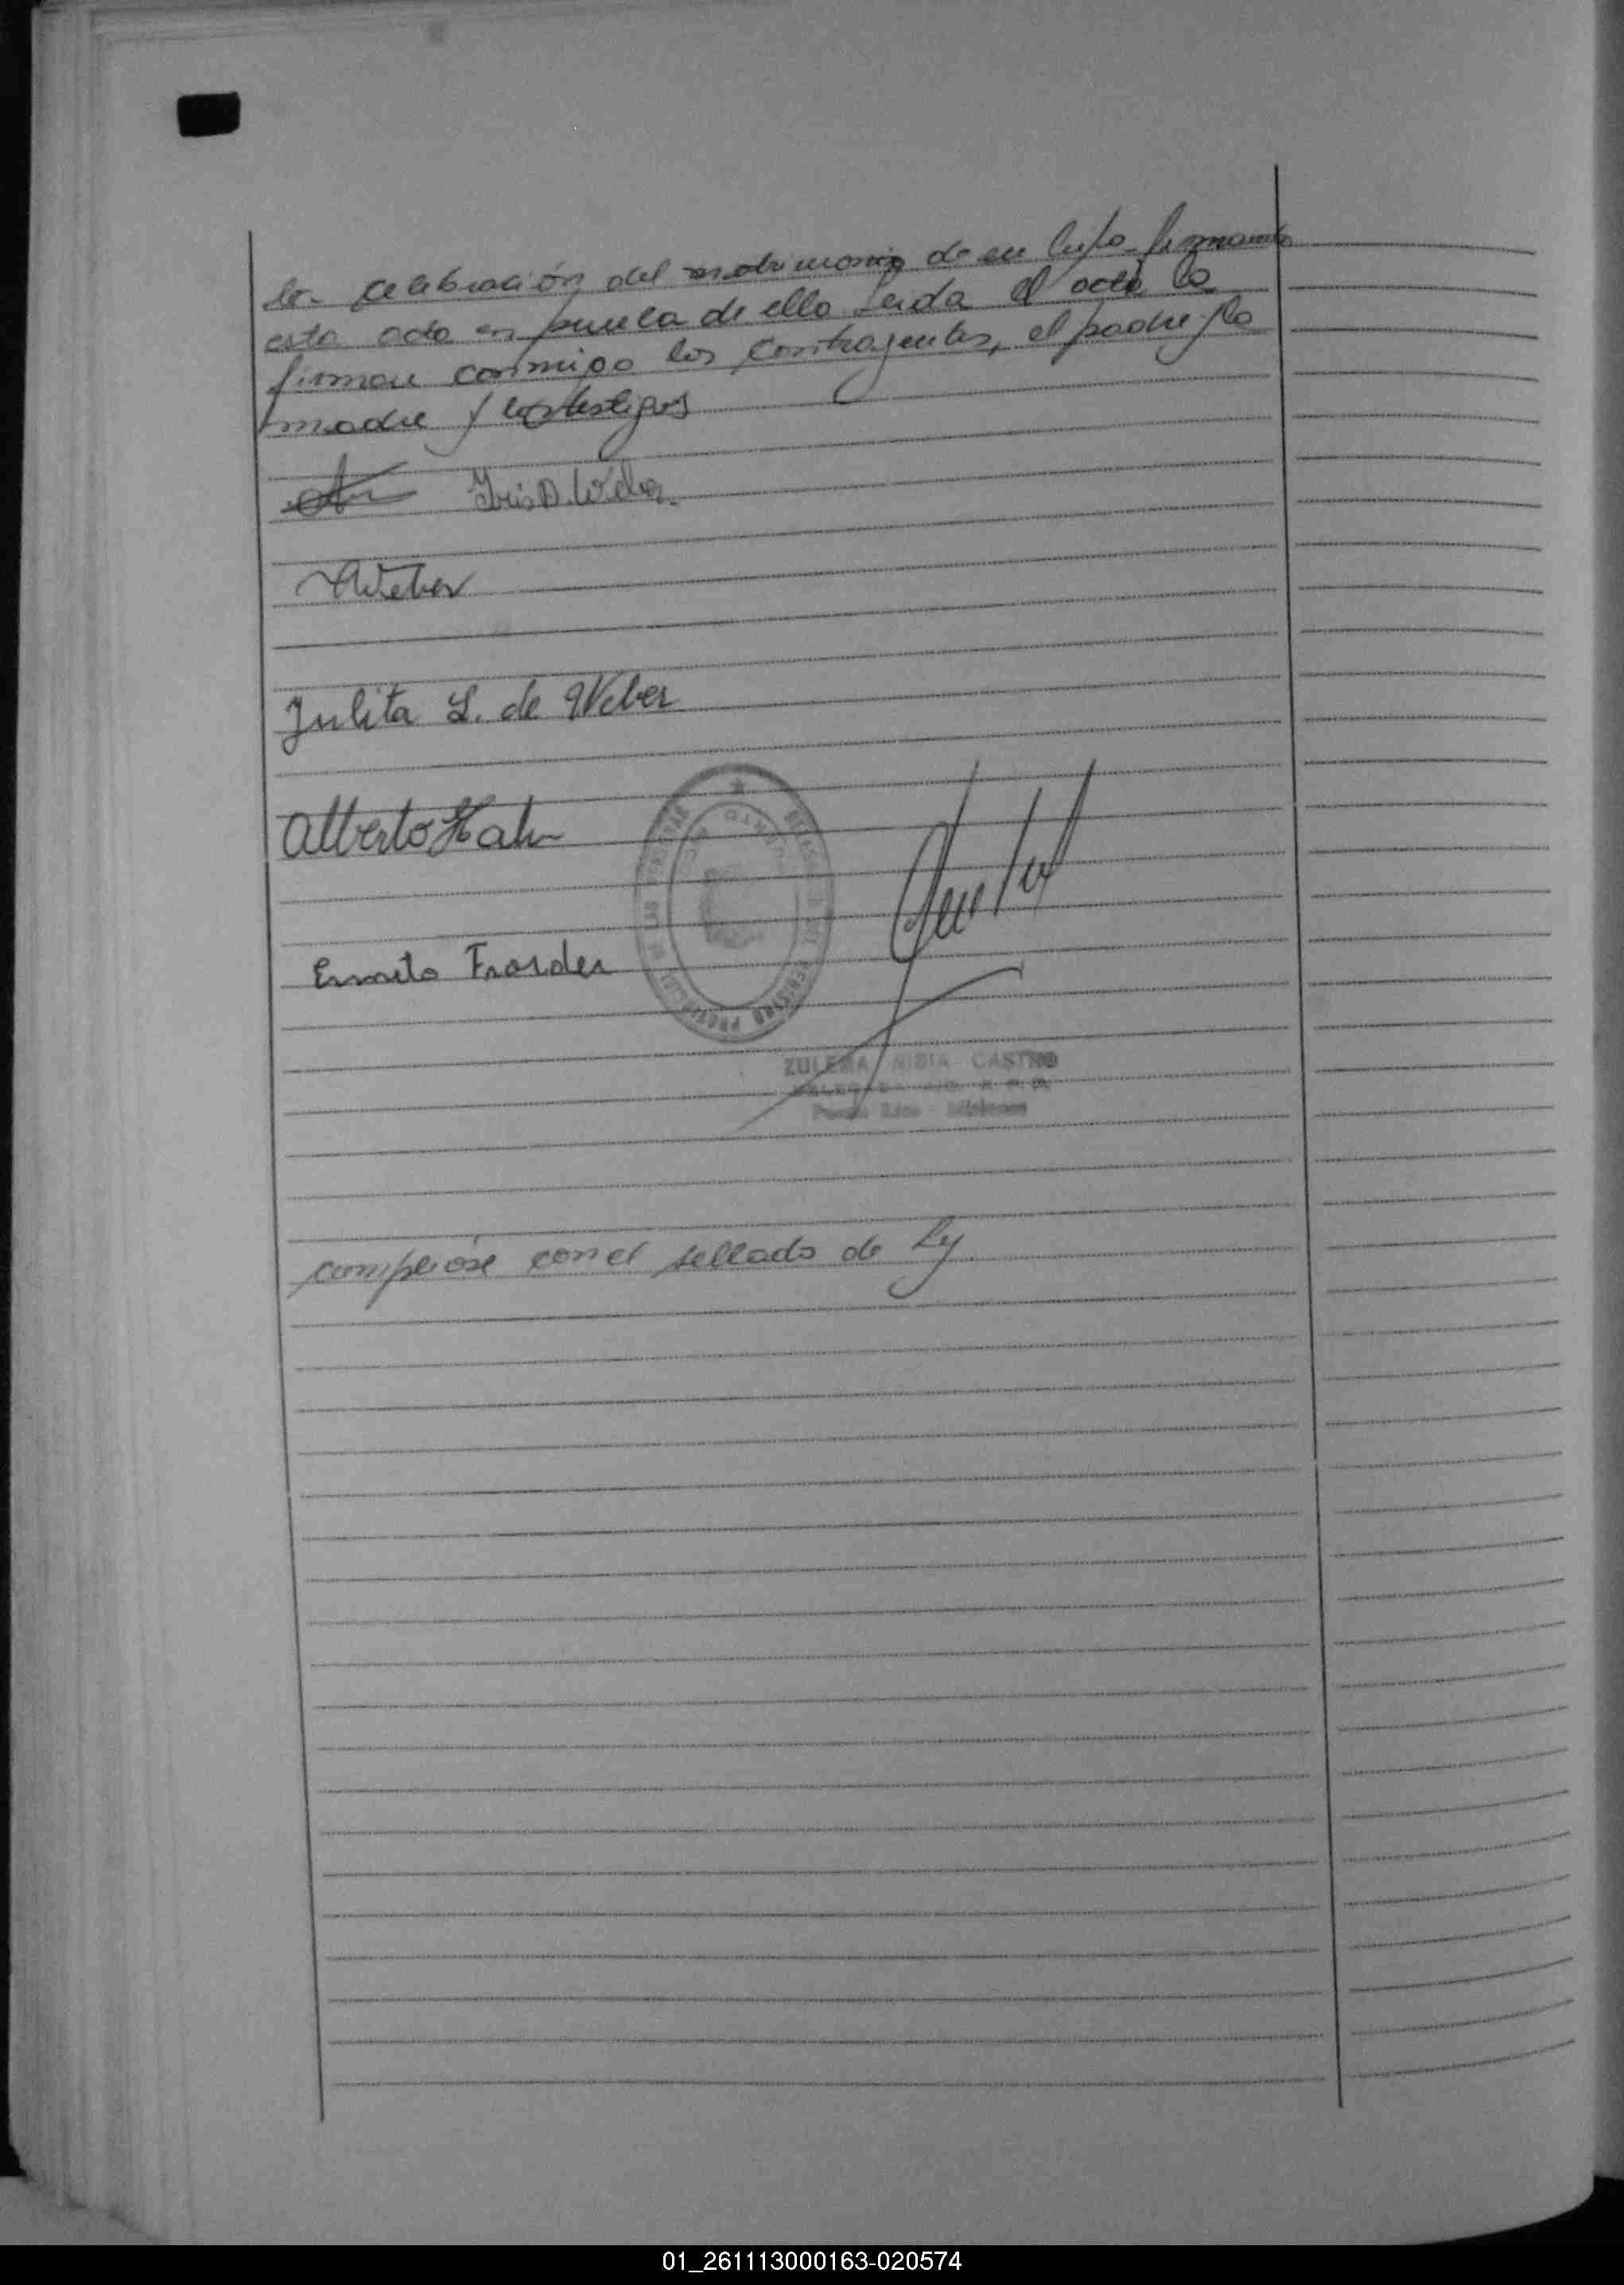 la celebración del matrimonio de su hija firmando
esta acta en prueba de ello Leida el acta la
firman conmigo los contrayentes, el padre y la
madre y los testigos
Iris D. Weber
Weber
Julita L. de Weber
Alberto Hahn
Ernesto
ZULEMA NIDIA CASTRO
Misiones
cumpliose con el sellado de Ley
01_261113000163-020574